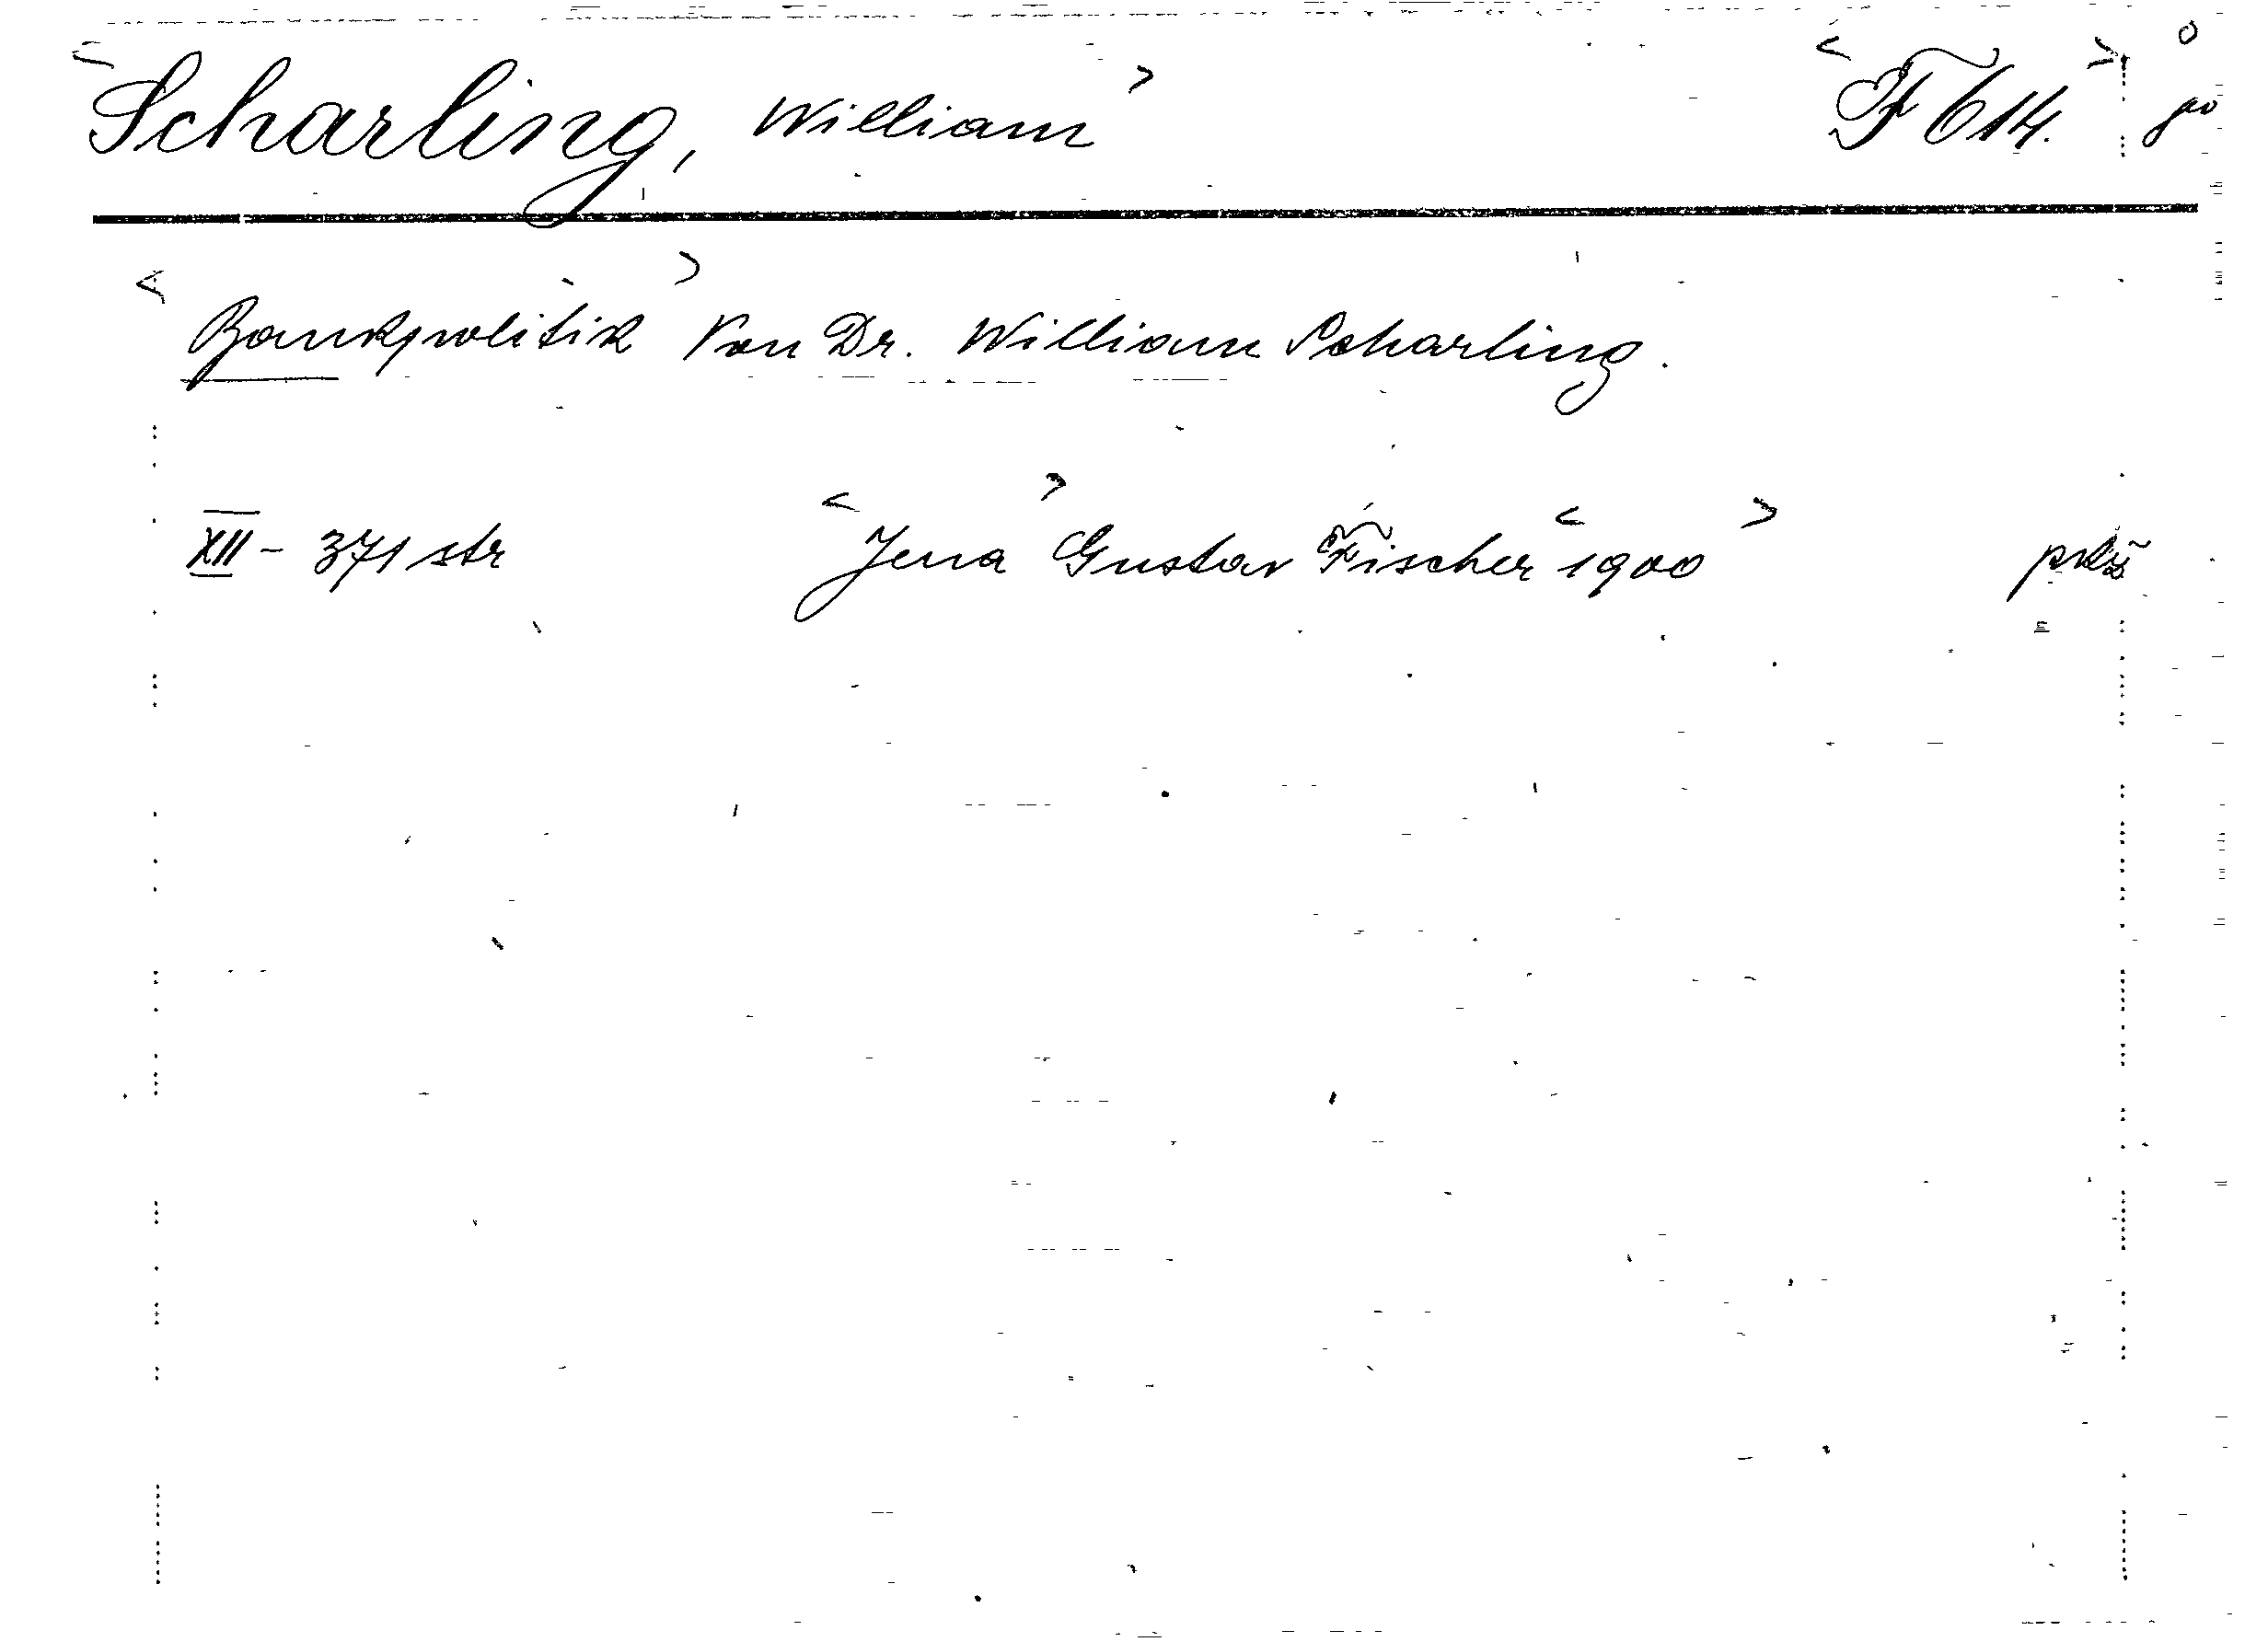 <Scharling, William> <F 614.>
<Bankpolitik> Von Dr. William Scharling.
XII - 371 str <Jena> Gustav Fischer <1900>